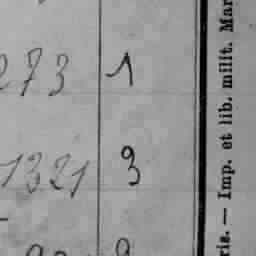 273 1
1321 3
ris. — Imp. et lib. milit. Mar